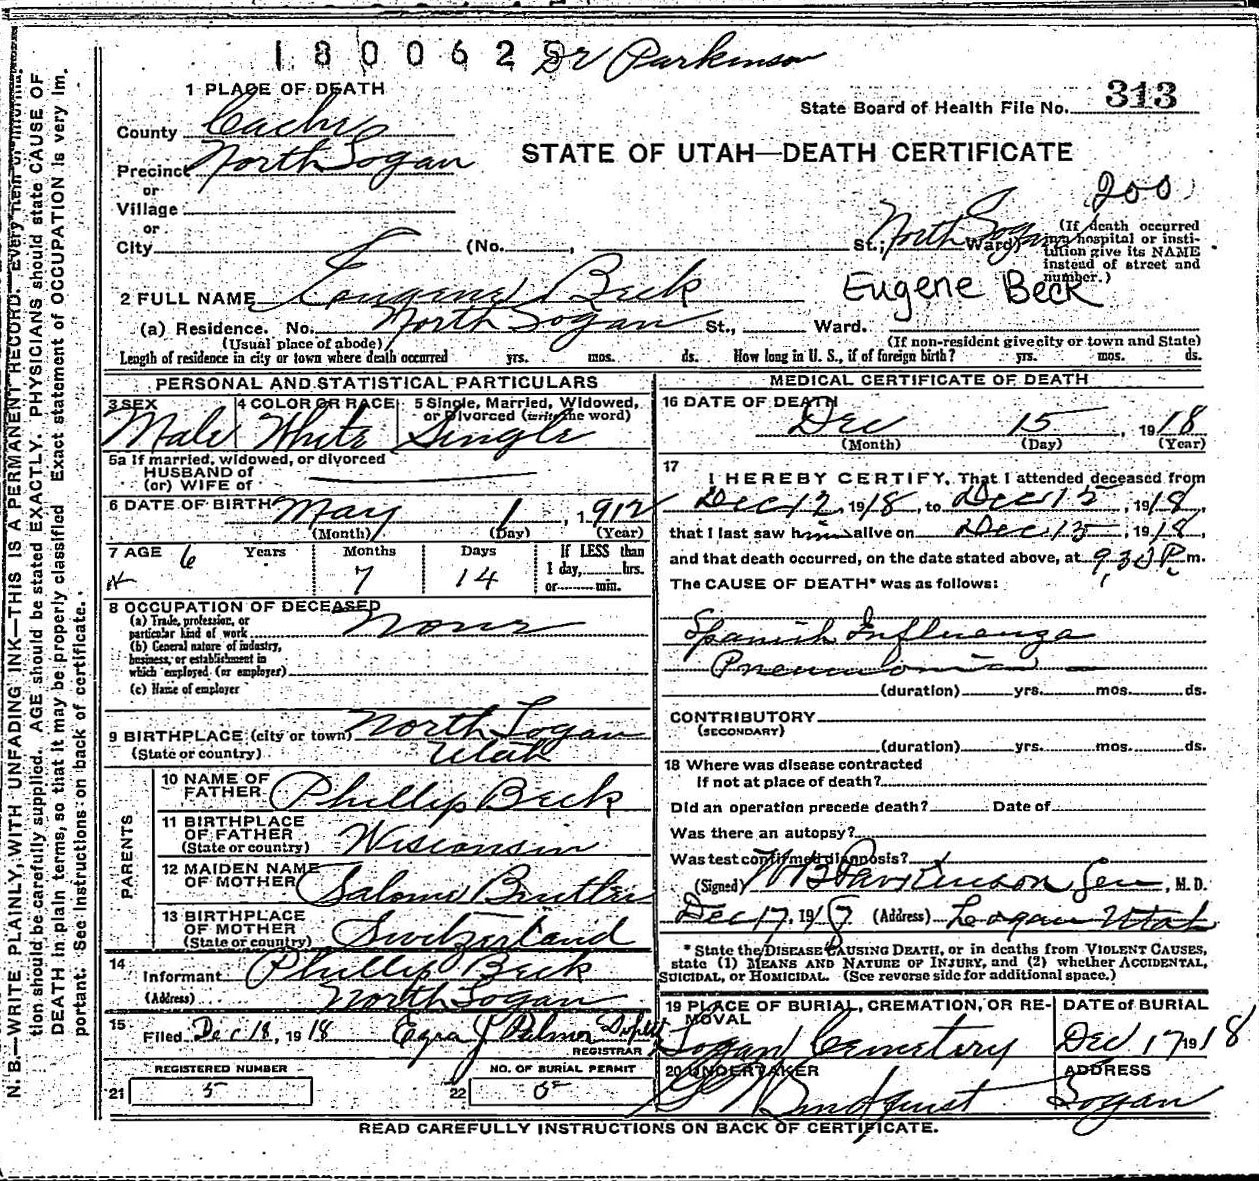 1800628 Dr Parkinson
1 PLACE OF DEATH
State Board of Health File No. 313
County Cache
STATE OF UTAH—DEATH CERTIFICATE
Precinct North Logan
or
Village
200
or
City (No. , St.; Ward) North Logan
(If death occurred in a hospital or institution give its NAME instead of street and number.)
2 FULL NAME Eugene Beck Eugene Beck
(a) Residence. No. North Logan St., Ward.
(Usual place of abode) (If non-resident give city or town and State)
Length of residence in city or town where death occurred yrs. mos. ds. How long in U. S., if of foreign birth? yrs. mos. ds.
PERSONAL AND STATISTICAL PARTICULARS
3 SEX 4 COLOR OR RACE 5 Single, Married, Widowed, or Divorced (write the word)
Male White Single
5a If married, widowed, or divorced
HUSBAND of
(or) WIFE of
6 DATE OF BIRTH May 1, 1912
(Month) (Day) (Year)
7 AGE 6 Years Months Days If LESS than
7 14 1 day, hrs.
or min.
8 OCCUPATION OF DECEASED
(a) Trade, profession, or
particular kind of work None
(b) General nature of industry,
business, or establishment in
which employed (or employer)
(c) Name of employer
9 BIRTHPLACE (city or town) North Logan
(State or country) Utah
PARENTS
10 NAME OF FATHER Phillip Beck
11 BIRTHPLACE OF FATHER Wisconsin
(State or country)
12 MAIDEN NAME OF MOTHER Salome
13 BIRTHPLACE OF MOTHER Switzerland
(State or country)
14 Informant Phillip Beck
(Address) North Logan
15 Filed Dec 18, 1918 Ezra J Palmer
REGISTRAR
REGISTERED NUMBER NO. OF BURIAL PERMIT
21 5 22 5
MEDICAL CERTIFICATE OF DEATH
16 DATE OF DEATH
Dec 15, 1918
(Month) (Day) (Year)
17
I HEREBY CERTIFY, That I attended deceased from
Dec 12, 1918, to Dec 15, 1918,
that I last saw him alive on Dec 15, 1918,
and that death occurred, on the date stated above, at 9,30 P.m.
The CAUSE OF DEATH* was as follows:
Spanish Influenza
Pneumonia
(duration) yrs. mos. ds.
CONTRIBUTORY
(SECONDARY)
(duration) yrs. mos. ds.
18 Where was disease contracted
if not at place of death?
Did an operation precede death? Date of
Was there an autopsy?
Was test confirmed diagnosis?
(Signed) W B Parkinson Sen, M. D.
Dec 17, 1918 (Address) Logan Utah
*State the DISEASE CAUSING DEATH, or in deaths from VIOLENT CAUSES,
state (1) MEANS AND NATURE OF INJURY, and (2) whether ACCIDENTAL,
SUICIDAL, or HOMICIDAL. (See reverse side for additional space.)
19 PLACE OF BURIAL, CREMATION, OR REMOVAL DATE OF BURIAL
Logan Cemetery Dec 17 1918
20 UNDERTAKER ADDRESS
Lindquist Logan
READ CAREFULLY INSTRUCTIONS ON BACK OF CERTIFICATE.
N. B.—WRITE PLAINLY, WITH UNFADING INK—THIS IS A PERMANENT RECORD. Every item of
tion should be carefully supplied. AGE should be stated EXACTLY. PHYSICIANS should state CAUSE OF
DEATH in plain terms, so that it may be properly classified. Exact statement of OCCUPATION is very im-
portant. See instructions on back of certificate.